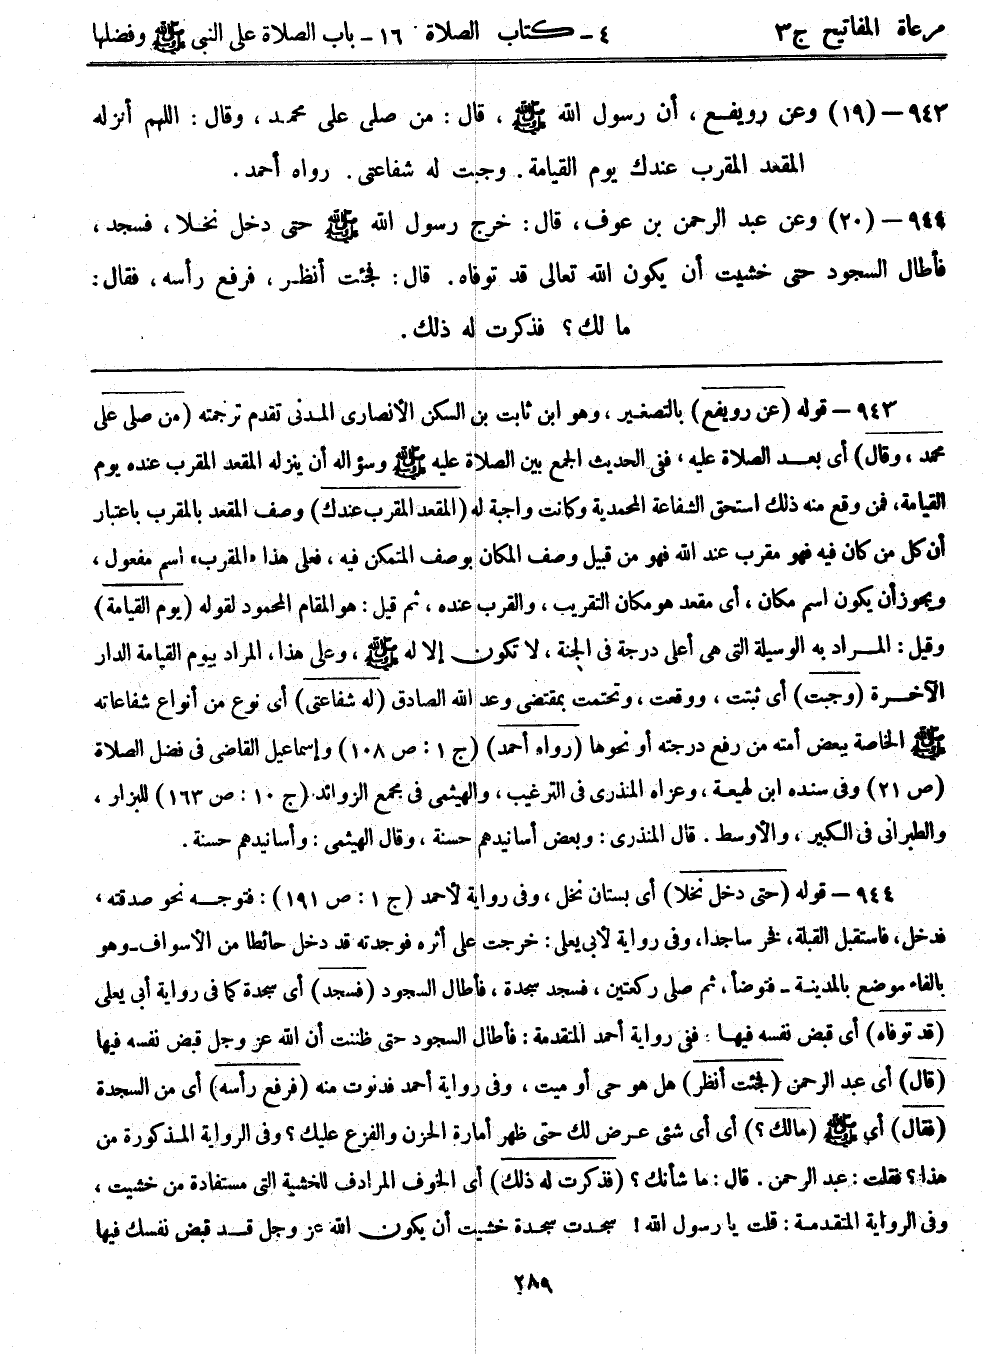 مرعاة المفاتيح ج ٣ ٤ - كتاب الصلاة ١٦ - باب الصلاة على النبى ﷺ وفضلها
٩٤٣ - (١٩) وعن رويفع، أن رسول الله ﷺ، قال: من صلى على محمد، وقال: اللهم أنزله
المقعد المقرب عندك يوم القيامة. وجبت له شفاعتى. رواه أحمد.
٩٤٤ - (٢٠) وعن عبد الرحمن بن عوف، قال: خرج رسول الله ﷺ حتى دخل نخلا، فسجد،
فأطال السجود حتى خشيت أن يكون الله تعالى قد توفاه. قال: فجئت أنظر، فرفع رأسه، فقال:
ما لك؟ فذكرت له ذلك.
٩٤٣ - قوله (عن رويفع) بالتصغير، وهو ابن ثابت بن السكن الأنصارى المدنى تقدم ترجمته (من صلى على
محمد، وقال) أى بعد الصلاة عليه، ففى الحديث الجمع بين الصلاة عليه ﷺ وسؤاله أن ينزله المقعد المقرب عنده يوم
القيامة، فمن وقع منه ذلك استحق الشفاعة المحمدية وكانت واجبة له (المقعد المقرب عندك) وصف المقعد بالمقرب باعتبار
أن كل من كان فيه فهو مقرب عند الله فهو من قبيل وصف المكان بوصف المتمكن فيه، فعلى هذا «المقرب» اسم مفعول،
ويجوز أن يكون اسم مكان، أى مقعد هو مكان التقريب، والقرب عنده، ثم قيل: هو المقام المحمود لقوله (يوم القيامة)
وقيل: المراد به الوسيلة التى هى أعلى درجة فى الجنة، لا تكون إلا له ﷺ، وعلى هذا، المراد بيوم القيامة الدار
الآخرة (وجبت) أى ثبتت، ووقعت، وتحتمت بمقتضى وعد الله الصادق (له شفاعتى) أى نوع من أنواع شفاعاته
ﷺ الخاصة ببعض أمته من رفع درجته أو نحوها (رواه أحمد) (ج ١: ص ١٠٨) وإسماعيل القاضى فى فضل الصلاة
(ص ٢١) وفى سنده ابن لهيعة، وعزاه المنذرى فى الترغيب، والهيثمى فى مجمع الزوائد (ج ١٠: ص ١٦٣) للبزار،
والطبرانى فى الكبير، والأوسط. قال المنذرى: وبعض أسانيدهم حسنة، وقال الهيثمى: وأسانيدهم حسنة.
٩٤٤ - قوله (حتى دخل نخلا) أى بستان نخل، وفى رواية لأحمد (ج ١: ص ١٩١): فتوجه نحو صدقته،
فدخل، فاستقبل القبلة، فخر ساجدا، وفى رواية لأبى يعلى: خرجت على أثره فوجدته قد دخل حائطا من الأسواف - وهو
بالفاء موضع بالمدينة - فتوضأ، ثم صلى ركعتين، فسجد سجدة، فأطال السجود (فسجد) أى سجدة كما فى رواية أبى يعلى
(قد توفاه) أى قبض نفسه فيها. ففى رواية أحمد المتقدمة: فأطال السجود حتى ظننت أن الله عز وجل قبض نفسه فيها
(قال) أى عبد الرحمن (فجئت أنظر) هل هو حى أو ميت، وفى رواية أحمد فدنوت منه (فرفع رأسه) أى من السجدة
(فقال) أي ﷺ (مالك؟) أى أى شئى عرض لك حتى ظهر أمارة الحزن والفزع عليك؟ وفى الرواية المذكورة من
هذا؟ فقلت: عبد الرحمن. قال: ما شأنك؟ (فذكرت له ذلك) أى الخوف المرادف للخشية التى مستفادة من خشيت،
وفى الرواية المتقدمة: قلت يا رسول الله! سجدت سجدة خشيت أن يكون الله عز وجل قد قبض نفسك فيها
٢٨٩